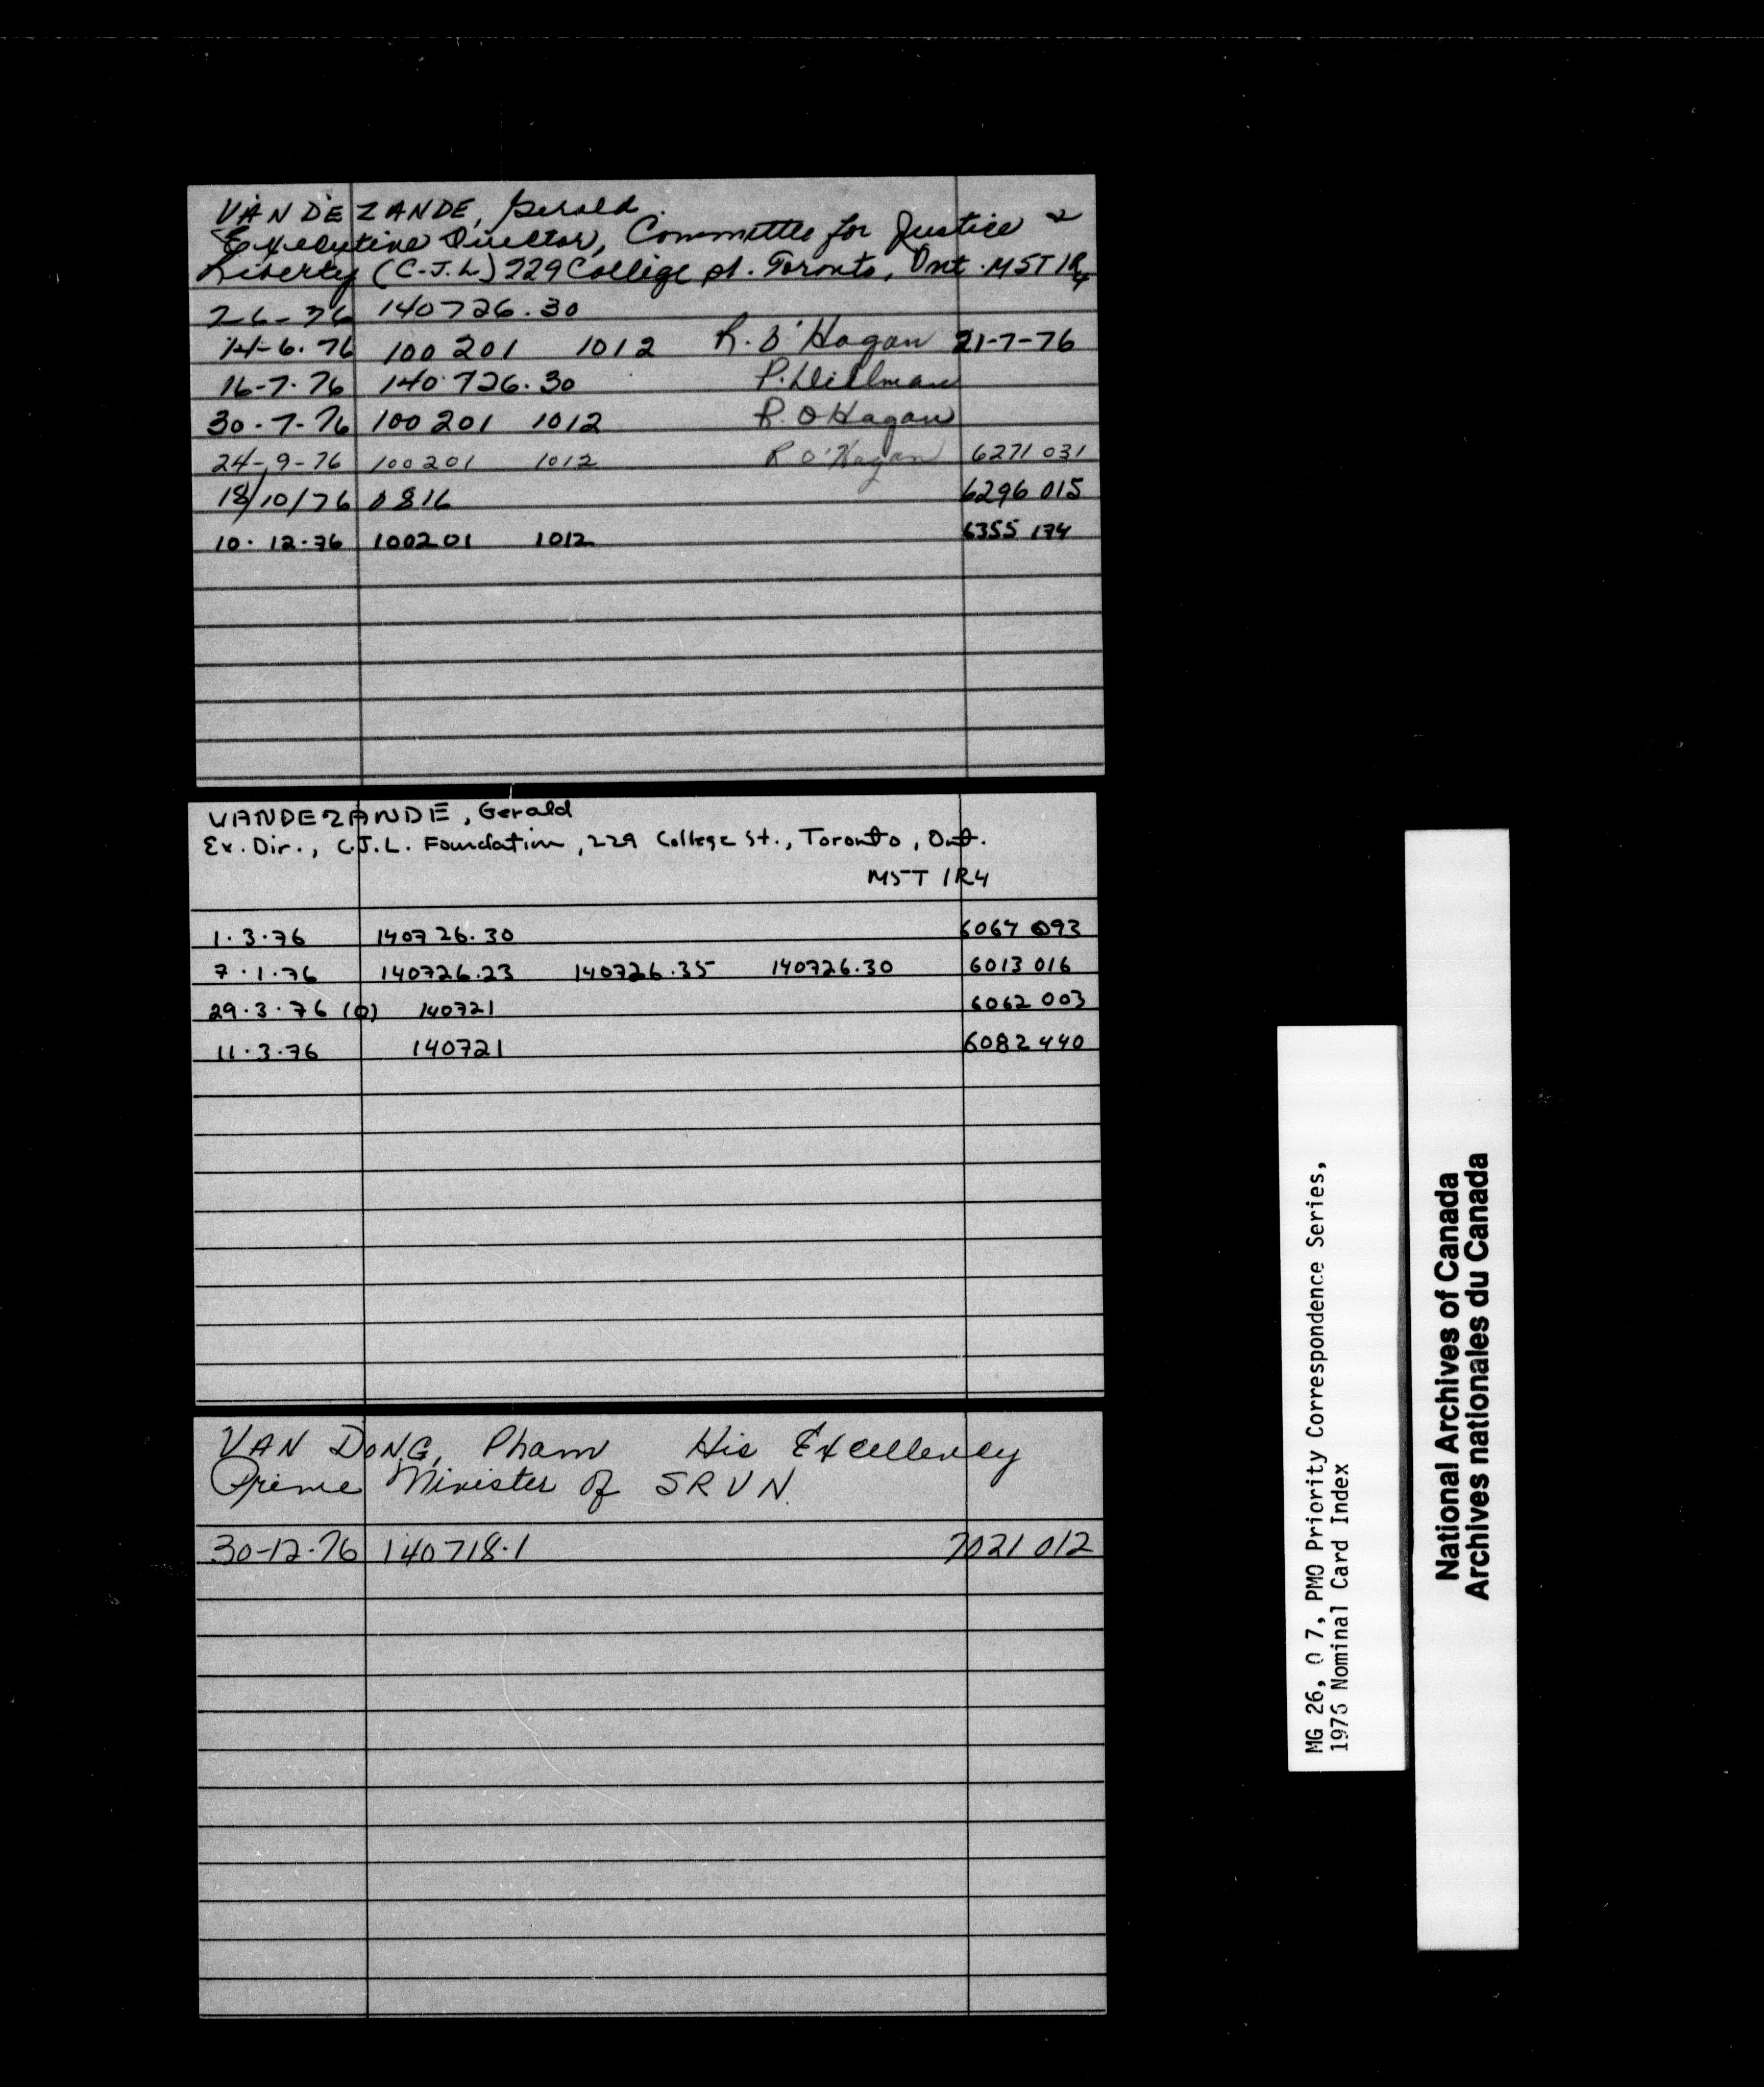 VANDEZANDE, Gerald.
Executive Director, Committee for Justice &
Liberty (C.J.L) 229 College st. Toronto, Ont. M5T 1R4
2-6-76 140726.30
14-6.76 100201 1012 R. O'Hagan 21-7-76
16-7.76 140726.30 P.
30-7-76 100201 1012 R. O'Hagan
24-9-76 100201 1012 R O'Hagan 6271 031
18/10/76 0816 6296 015
10.12.76 100201 1012 6355 174
VANDEZANDE, Gerald
Ex. Dir., C.J.L. Foundation, 229 College St., Toronto, Ont.
M5T 1R4
1.3.76 140726.30 6064 093
7.1.76 140726.23 140726.35 140726.30 6013 016
29.3.76 (0) 140721 6062 003
11.3.76 140721 6082 440
VAN DONG, Pham His Excellency
Prime Minister of SRVN.
30-12-76 140718.1 7021 012
MG 26, O 7, PMO Priority Correspondence Series,
1976 Nominal Card Index
National Archives of Canada
Archives nationales du Canada